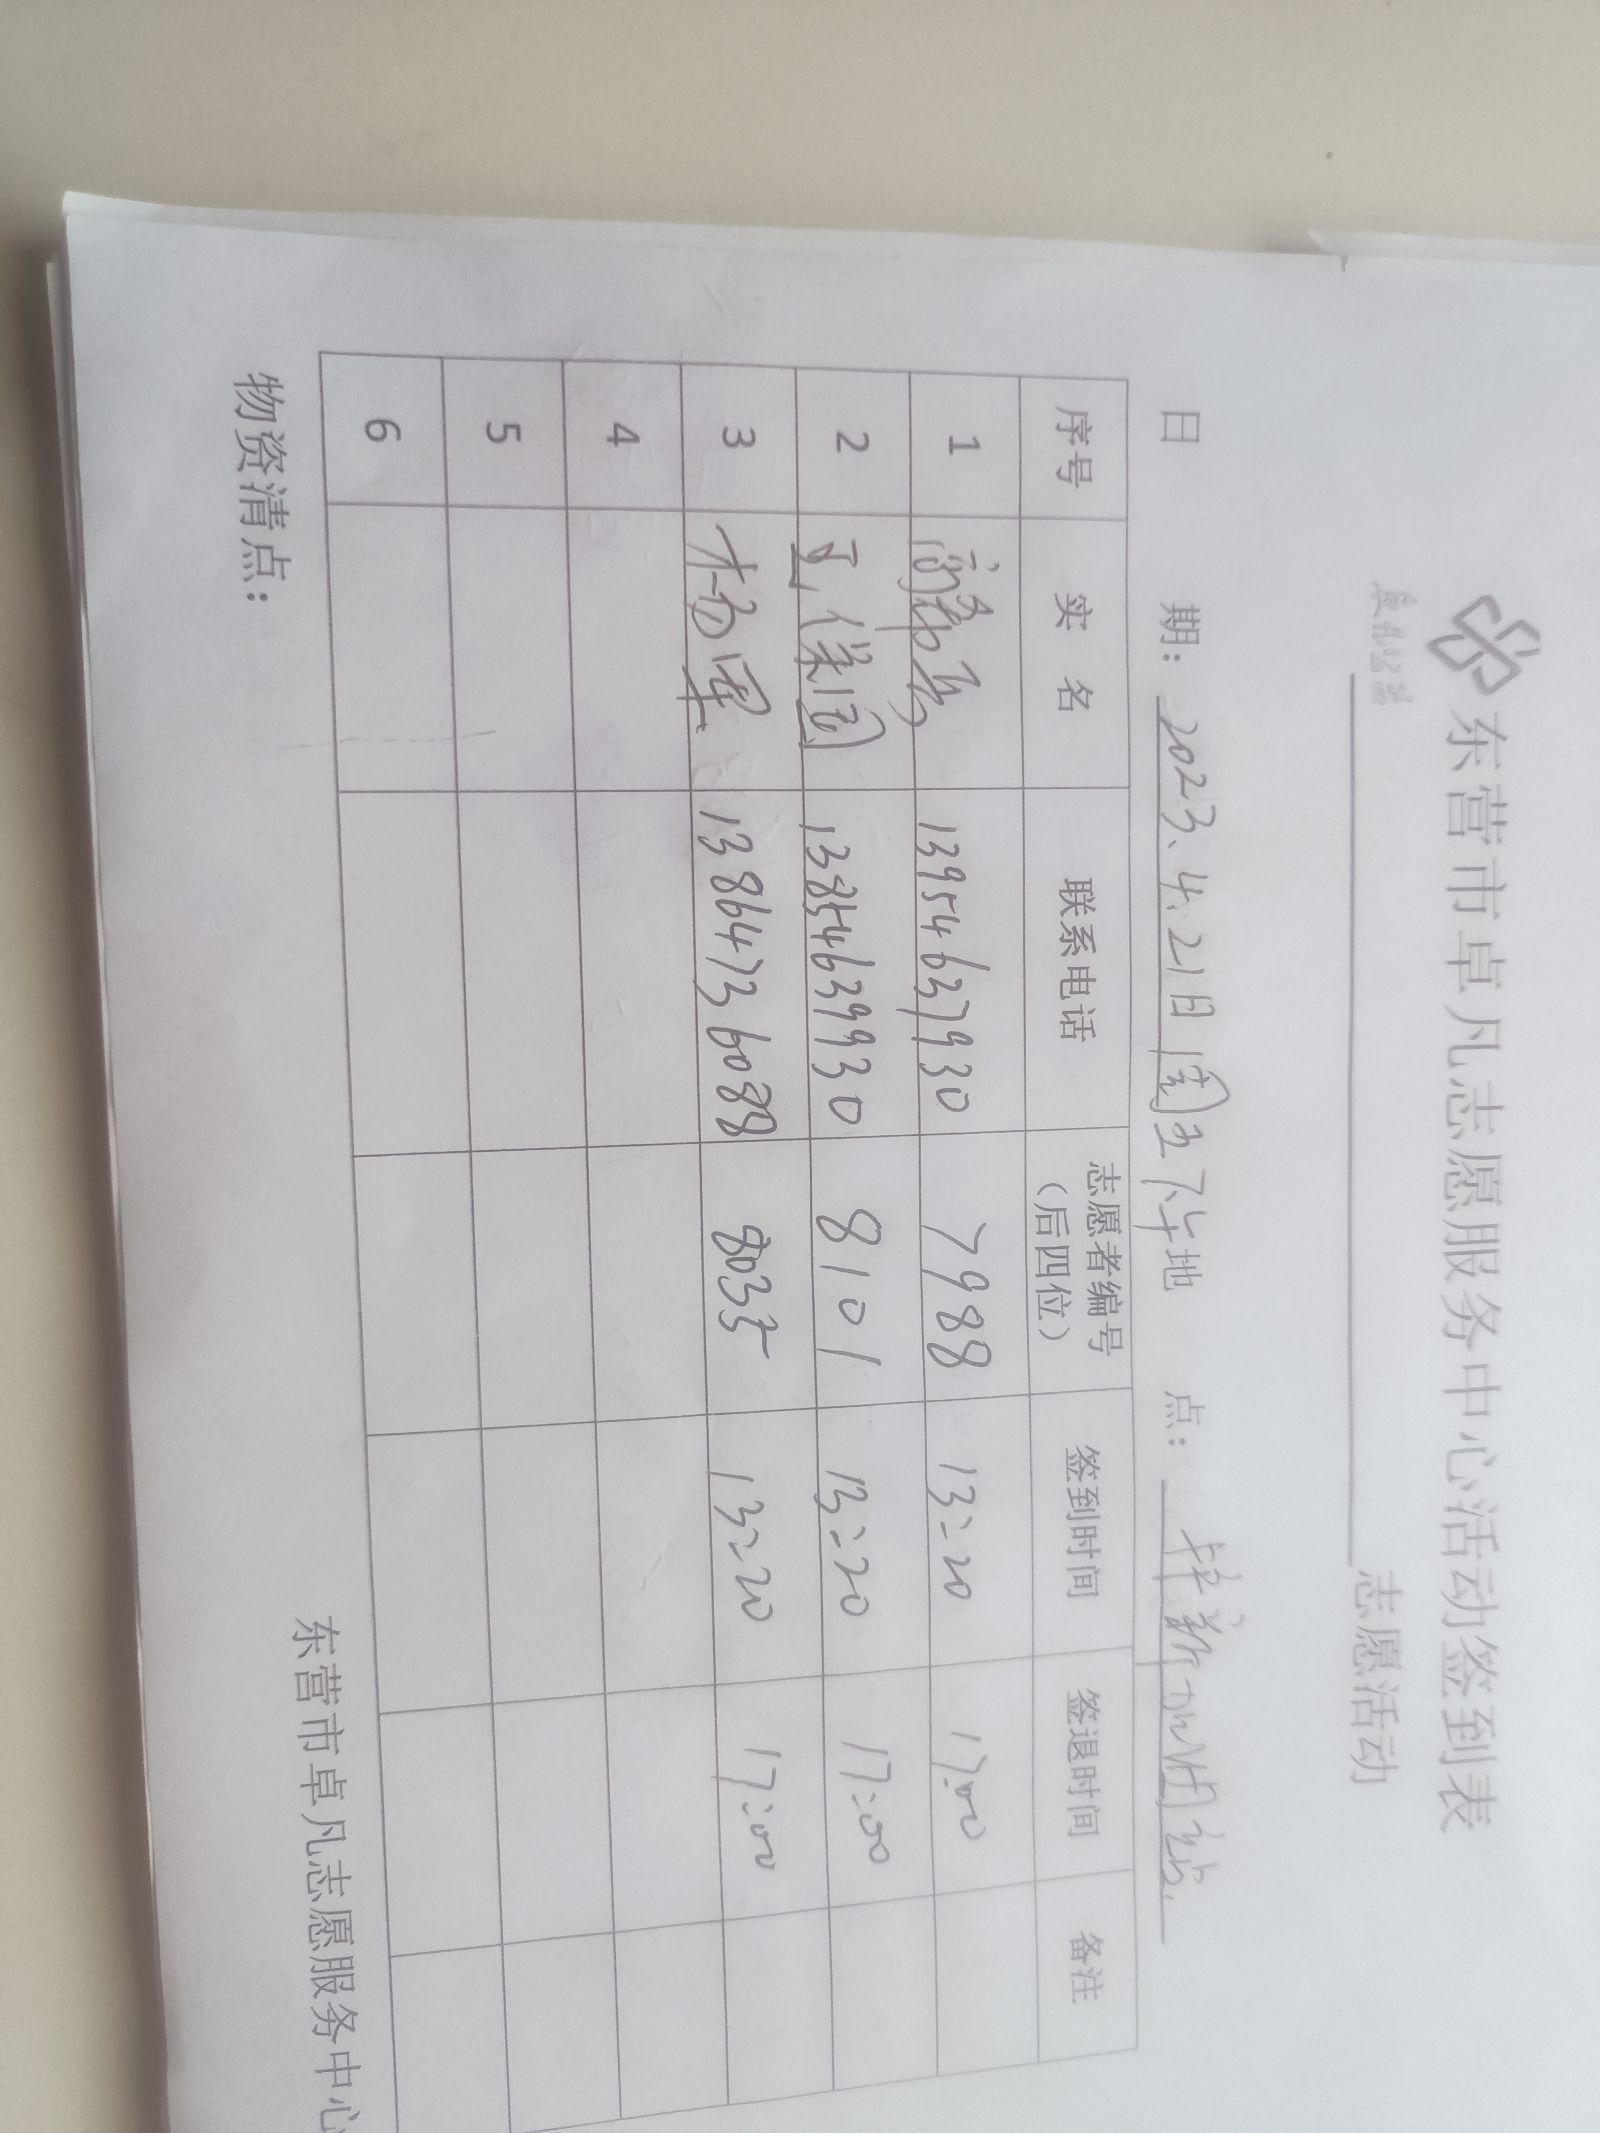 东营市卓凡志愿服务中心活动签到表
志愿活动
日 期: 2023.4.21日 周五下午 地 点:
序号 实 名 联系电话 志愿者编号（后四位） 签到时间 签退时间 备注
1 13954637930 7988 13:20 17:00
2 13854639930 8101 13:20 17:00
3 杨军 13864736088 8035 13:20 17:00
4
5
6
物资清点：
东营市卓凡志愿服务中心